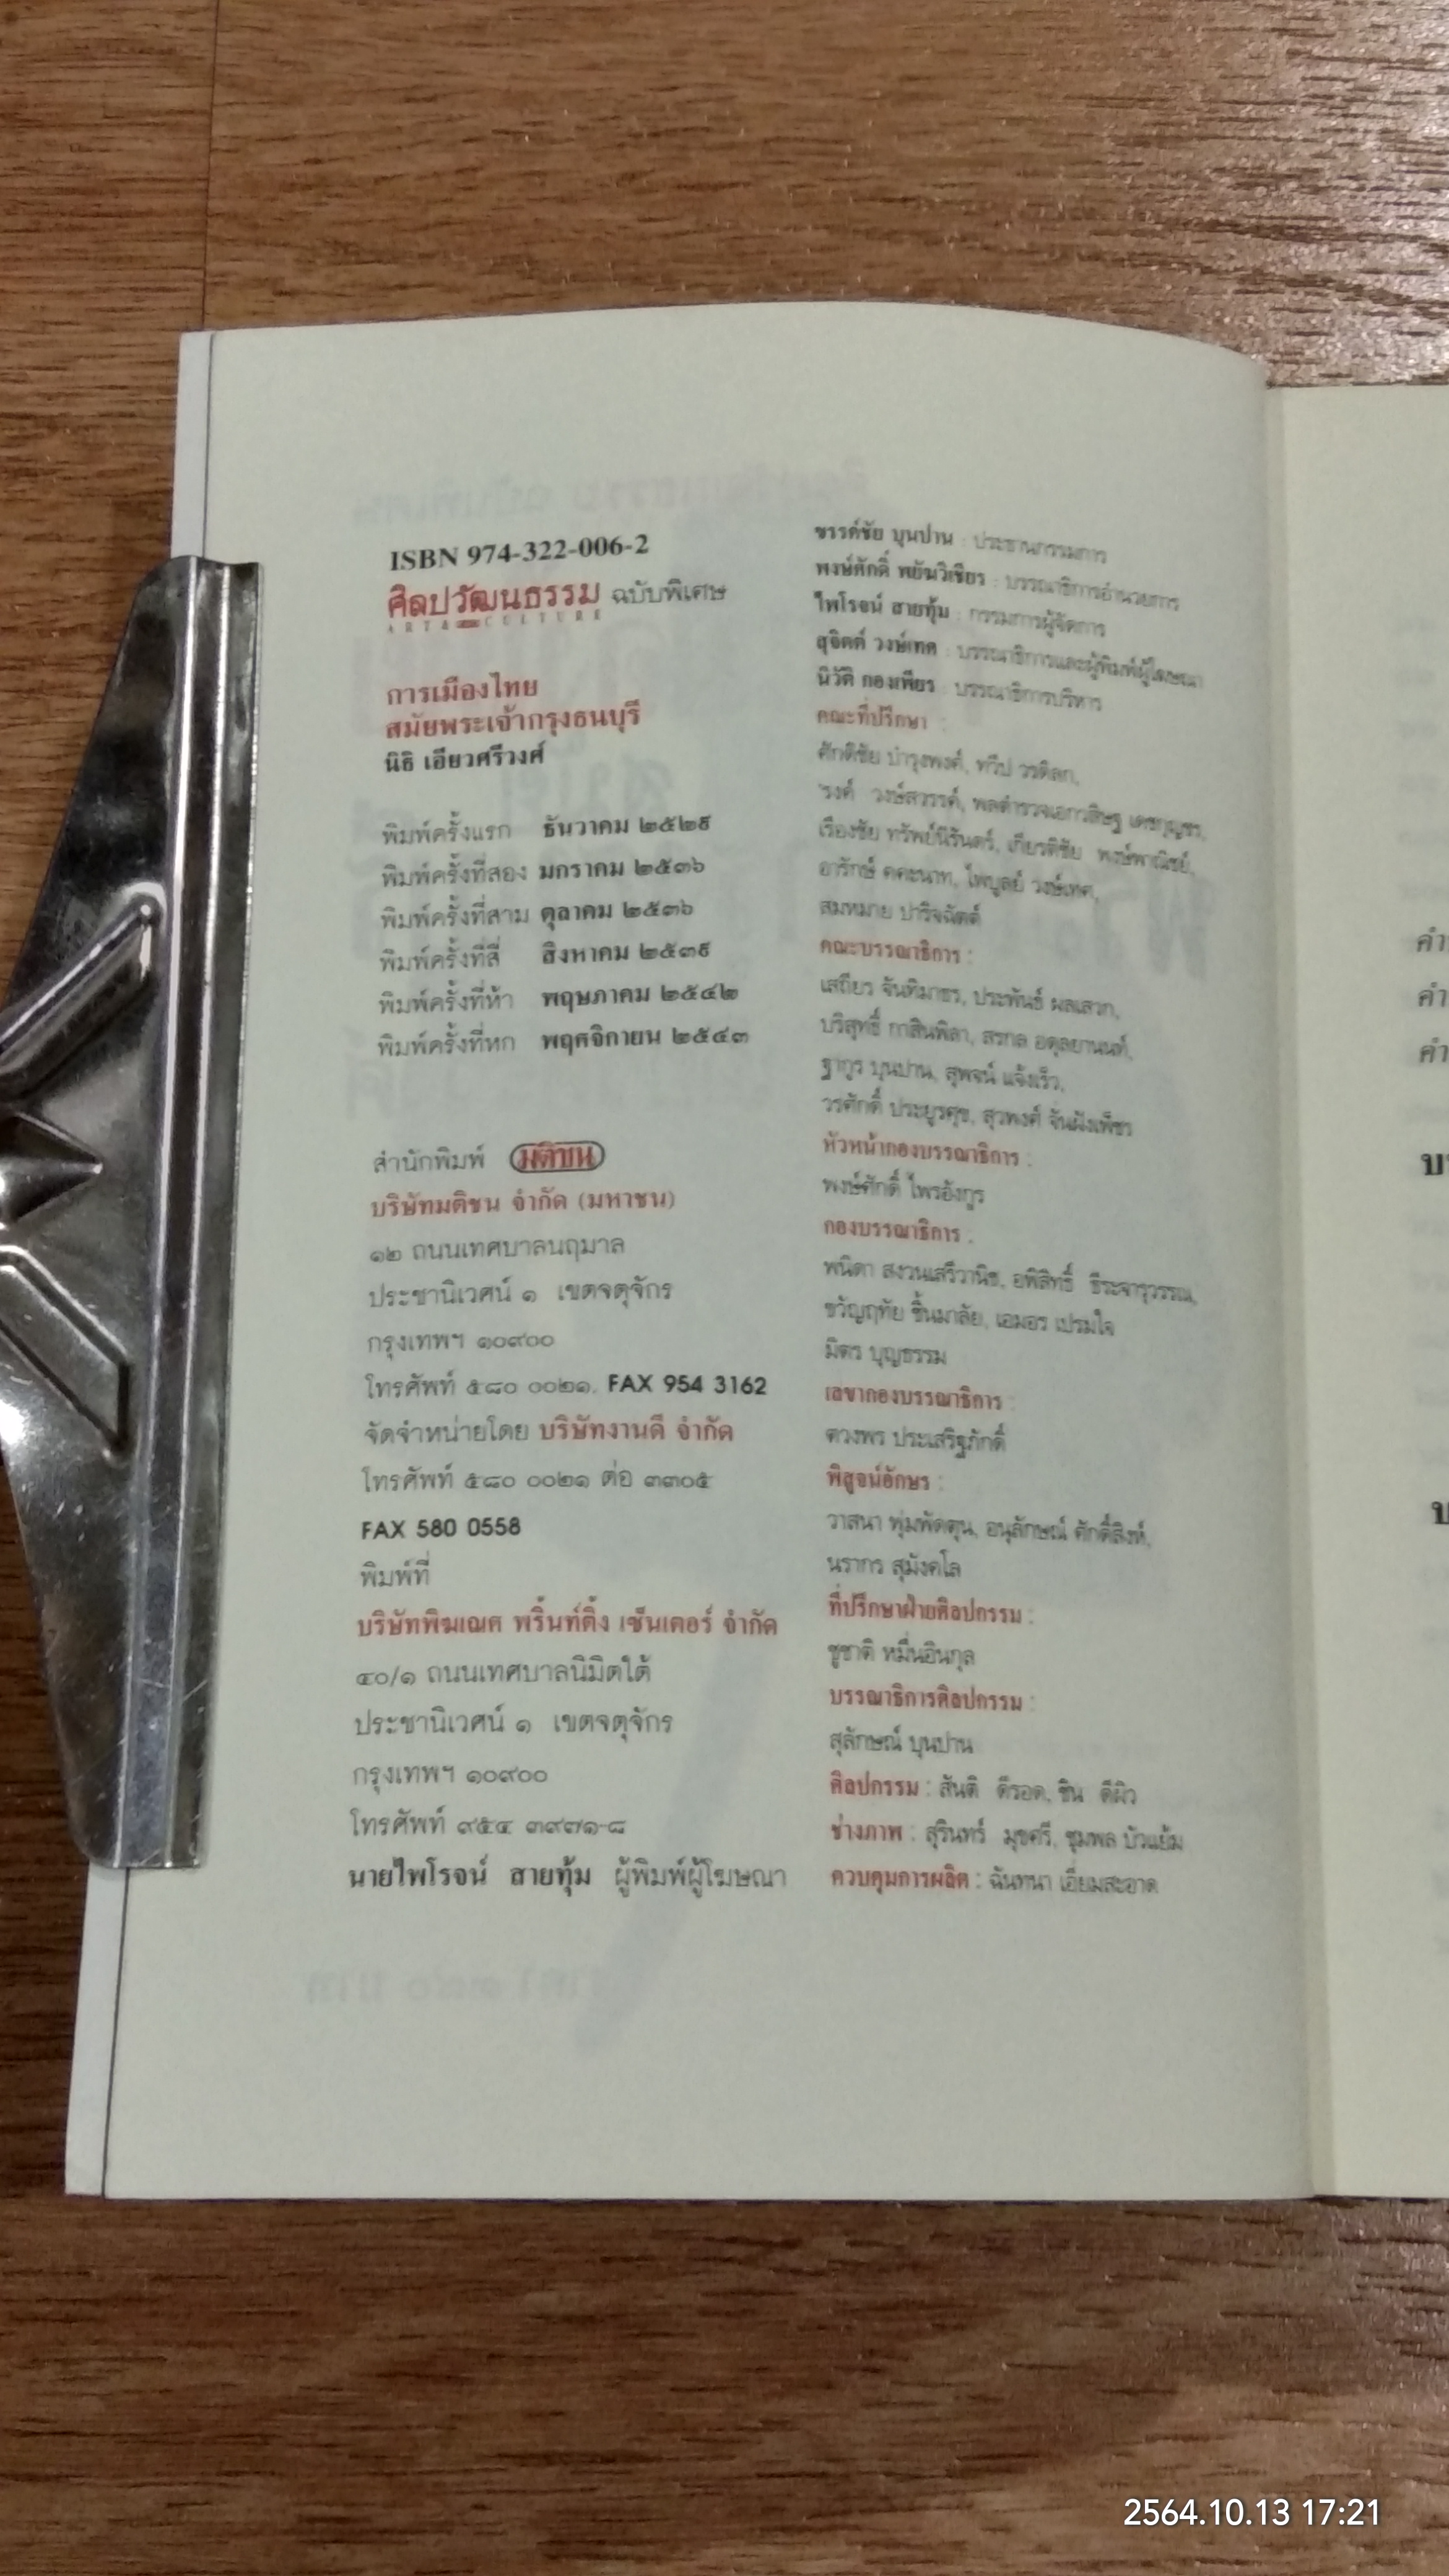 ISBN 974-322-006-2
ศิลปวัฒนธรรม ฉบับพิเศษ
ART & CULTURE
การเมืองไทย
สมัยพระเจ้ากรุงธนบุรี
นิธิ เอียวศรีวงศ์
พิมพ์ครั้งแรก ธันวาคม ๒๕๒๙
พิมพ์ครั้งที่สอง มกราคม ๒๕๓๖
พิมพ์ครั้งที่สาม ตุลาคม ๒๕๓๖
พิมพ์ครั้งที่สี่ สิงหาคม ๒๕๓๙
พิมพ์ครั้งที่ห้า พฤษภาคม ๒๕๔๒
พิมพ์ครั้งที่หก พฤศจิกายน ๒๕๔๓
สำนักพิมพ์ มติชน
บริษัทมติชน จำกัด (มหาชน)
๑๒ ถนนเทศบาลนฤมาล
ประชานิเวศน์ ๑ เขตจตุจักร
กรุงเทพฯ ๑๐๙๐๐
โทรศัพท์ ๕๘๐ ๐๐๒๑, FAX 954 3162
จัดจำหน่ายโดย บริษัทงานดี จำกัด
โทรศัพท์ ๕๘๐ ๐๐๒๑ ต่อ ๓๓๐๕
FAX 580 0558
พิมพ์ที่
บริษัทพิฆเณศ พริ้นท์ติ้ง เซ็นเตอร์ จำกัด
๔๐/๑ ถนนเทศบาลนิมิตใต้
ประชานิเวศน์ ๑ เขตจตุจักร
กรุงเทพฯ ๑๐๙๐๐
โทรศัพท์ ๙๕๔ ๓๙๗๑-๘
นายไพโรจน์ สายทุ้ม ผู้พิมพ์ผู้โฆษณา
ขรรค์ชัย บุนปาน : ประธานกรรมการ
พงษ์ศักดิ์ พยัฆวิเชียร : บรรณาธิการอำนวยการ
ไพโรจน์ สายทุ้ม : กรรมการผู้จัดการ
สุจิตต์ วงษ์เทศ : บรรณาธิการและผู้พิมพ์ผู้โฆษณา
นิวัติ กองเพียร : บรรณาธิการบริหาร
คณะที่ปรึกษา :
ศักดิชัย บำรุงพงศ์, ทวีป วรดิลก,
'รงค์ วงษ์สวรรค์, พลตำรวจเอกวสิษฐ เดชกุญชร,
เรืองชัย ทรัพย์นิรันดร์, เกียรติชัย พงษ์พาณิชย์,
อารักษ์ คคะนาท, ไพบูลย์ วงษ์เทศ,
สมหมาย ปาริจฉัตต์
คณะบรรณาธิการ :
เสถียร จันทิมาธร, ประพันธ์ ผลเสวก,
บริสุทธิ์ กาสินพิลา, สรกล อดุลยานนท์,
ฐากูร บุนปาน, สุพจน์ แจ้งเร็ว,
วรศักดิ์ ประยูรศุข, สุวพงศ์ จั่นฝังเพ็ชร
หัวหน้ากองบรรณาธิการ :
พงษ์ศักดิ์ ไพรอังกูร
กองบรรณาธิการ :
พนิดา สงวนเสรีวานิช, อพิสิทธิ์ ธีระจารุวรรณ,
ขวัญฤทัย ชื่นมาลัย, เอมอร เปรมใจ
มิตร บุญธรรม
เลขากองบรรณาธิการ :
ดวงพร ประเสริฐภักดิ์
พิสูจน์อักษร :
วาสนา พุ่มพัดตุน, อนุลักษณ์ ศักดิ์สิงห์,
นรากร สุมังคโล
ที่ปรึกษาฝ่ายศิลปกรรม :
ชูชาติ หมื่นอินกุล
บรรณาธิการศิลปกรรม :
สุลักษณ์ บุนปาน
ศิลปกรรม : สันติ ดีรอด, ชิน ดีผิว
ช่างภาพ : สุรินทร์ มุขศรี, ชุมพล บัวแย้ม
ควบคุมการผลิต : ฉันทนา เอี่ยมสะอาด
2564.10.13 17:21